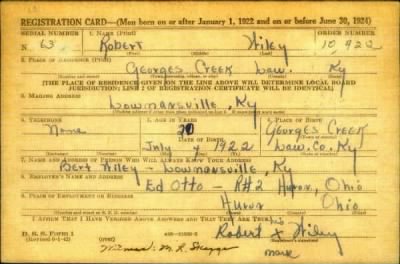 REGISTRATION CARD—(Men born on or after January 1, 1922 and on or before June 30, 1924)
SERIAL NUMBER 1. NAME (Print) ORDER NUMBER
N 63 Robert Wiley 10,922
2. PLACE OF RESIDENCE (Print)
Georges Creek Law. Ky
(THE PLACE OF RESIDENCE GIVEN ON THE LINE ABOVE WILL DETERMINE LOCAL BOARD
JURISDICTION; LINE 2 OF REGISTRATION CERTIFICATE WILL BE IDENTICAL)
3. MAILING ADDRESS
Lowmansville, Ky
4. TELEPHONE 5. AGE IN YEARS 6. PLACE OF BIRTH
None 20 Georges Creek
DATE OF BIRTH
July 4 1922 Law. Co. Ky
7. NAME AND ADDRESS OF PERSON WHO WILL ALWAYS KNOW YOUR ADDRESS
Bert Wiley - Lowmansville, Ky
8. EMPLOYER'S NAME AND ADDRESS
Ed Otto - R#2 Huron, Ohio
9. PLACE OF EMPLOYMENT OR BUSINESS
Huron Ohio
I AFFIRM THAT I HAVE VERIFIED ABOVE ANSWERS AND THAT THEY ARE TRUE.
D. S. S. Form 1 his
Robert X Wiley
Witness: M. R. Skaggs mark